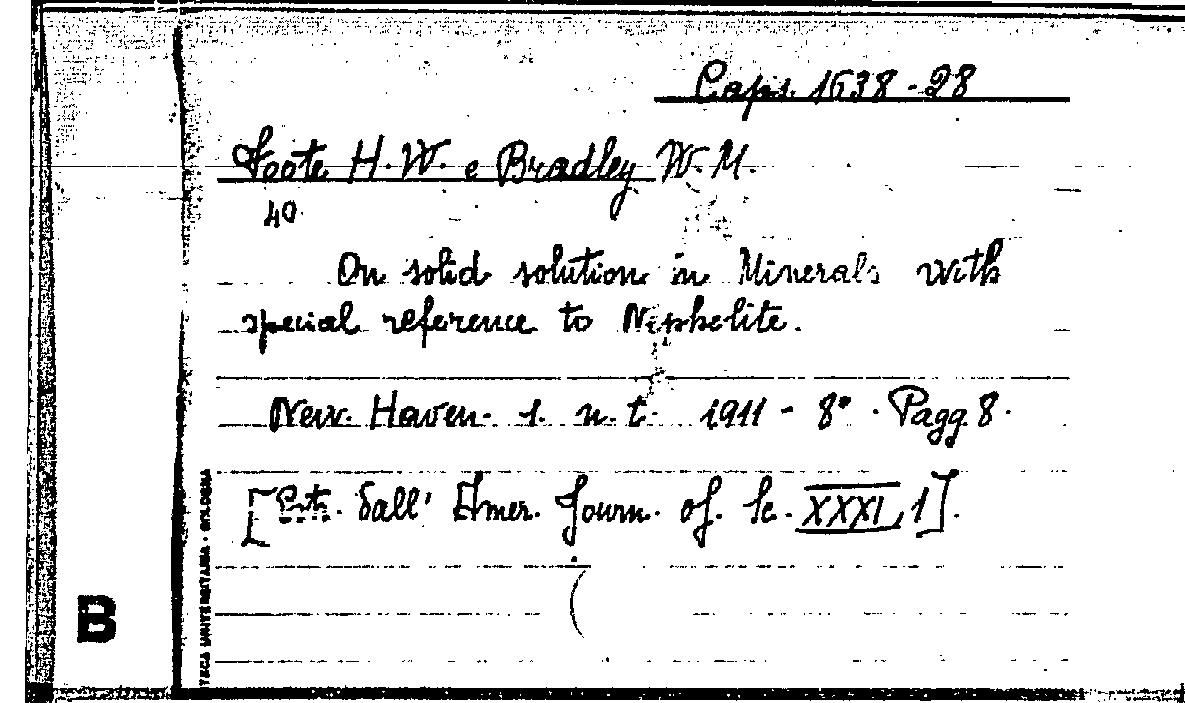 Caps. 1638-28
Foote H.W. e Bradley W.M.
40
On solid solution in Minerals with
special reference to Nephelite.
New. Haven. s. n. t. 1911 - 8° . Pagg. 8.
[Estr. dall' Amer. Journ. of. Sc. XXXI, 1].
B
TECA UNIVERSITARIA - BOLOGNA